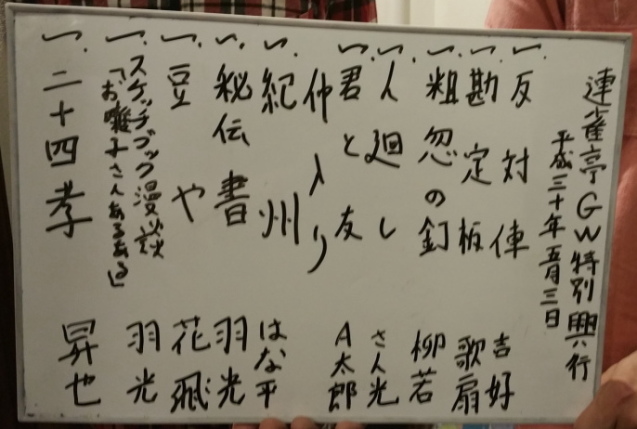 連雀亭GW特別興行
平成三十年五月三日
一、反対俥 吉好
一、勘定板 歌扇
一、粗忽の釘 柳若
一、人廻し さん光
一、君と友 A太郎
仲入り
一、紀州 はな平
一、秘伝書 羽光
一、豆や 花飛
一、スケッチブック漫談
「お囃子さんあるある」 羽光
一、二十四孝 昇也